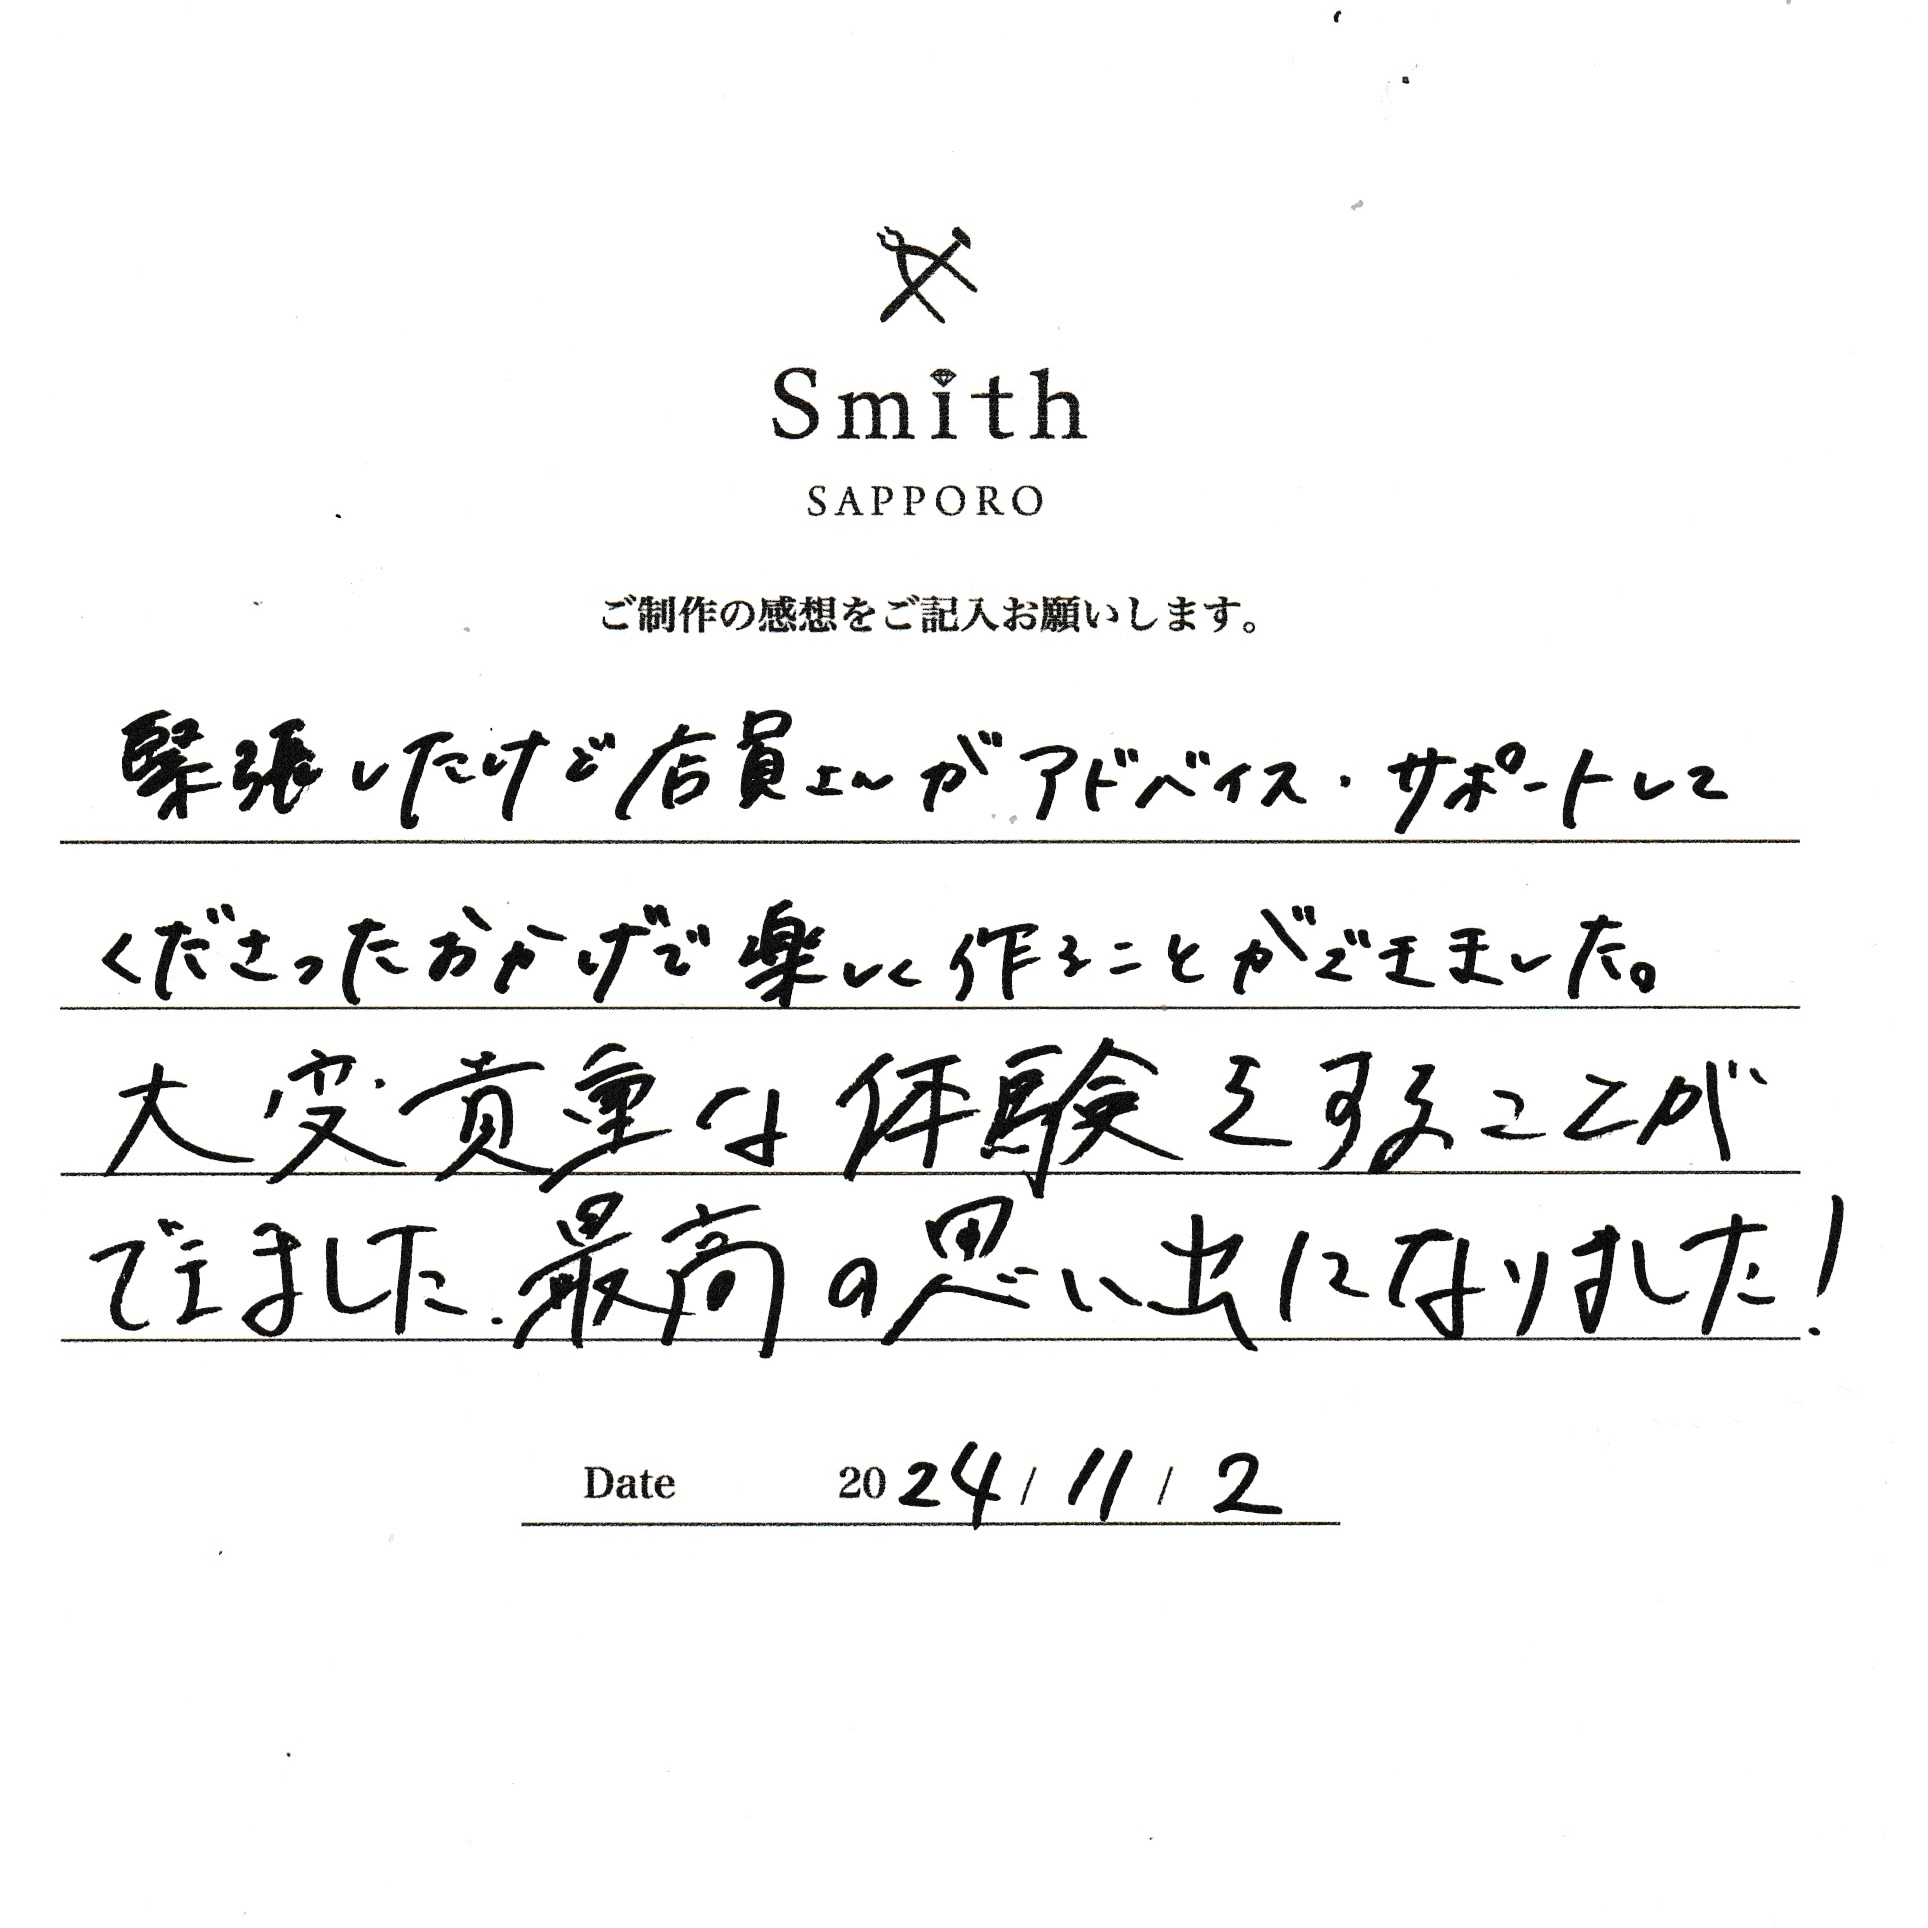 Smith
SAPPORO
ご制作の感想をご記入お願いします。
緊張したけど店員さんがアドバイス・サポートして
くださったおかげで楽しく作ることができました。
大変貴重な体験をすることが
できました.最高の思い出になりました!
Date 2024/11/2